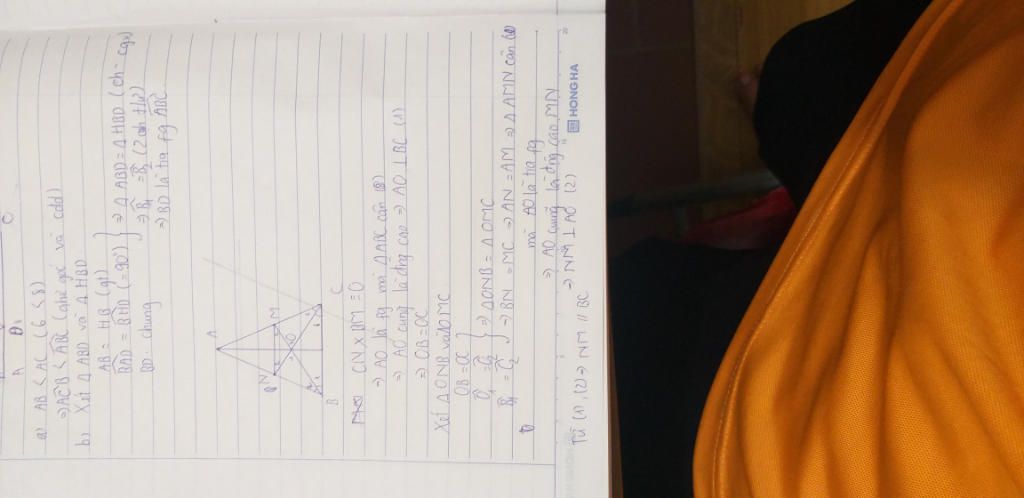 C
A D1
a) AB < AC (6 < 8)
⇒ ACB < ABC (ghê góc và cdd)
b) Xét Δ ABD và Δ HBD
AB = HB (gt)
BAD = BHD (= 90°)
BD chung
} ⇒ Δ ABD = Δ HBD (ch - cgv)
⇒ B1 = B2 (2 cah t/ứ)
⇒ BD là tia pg ABC
A
N M
O
B C
CN x BM = O
⇒ AO là pg mà Δ ABC cân (B)
⇒ AO cung là đg cao ⇒ AO ⊥ BC (1)
⇒ OB = OC
Xét Δ ONB và OMC
OB = OC
} ⇒ Δ ONB = Δ OMC
⇒ BN = MC ⇒ AN = AM ⇒ Δ AMN cân
mà AO là tia pg
⇒ AO cung là đg cao MN
⇒ NM ⊥ AO (2)
Từ (1), (2) ⇒ NM // BC
HONG HA